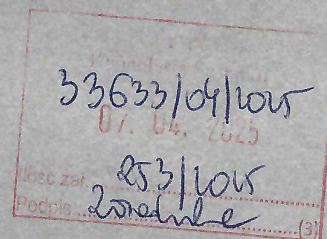 33633/04/2025
07. 04. 2025
Ilość zał. 253/2025
Podpis
(3)